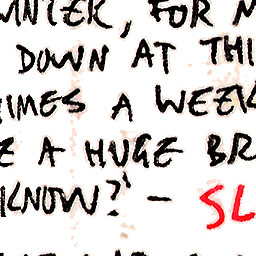 WINTER, FOR M
DOWN AT THI
TIMES A WEEK
E A HUGE BR
KNOW?' – SL